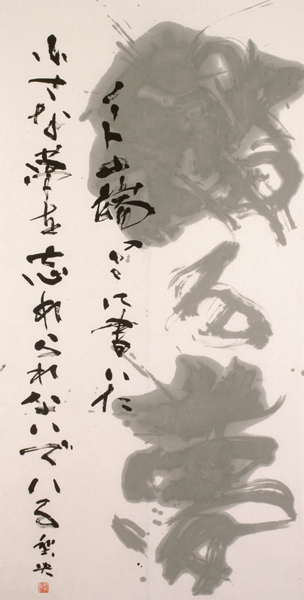 る
ノートの端っこに書いた
小さな夢を忘れられないでいる 梨央